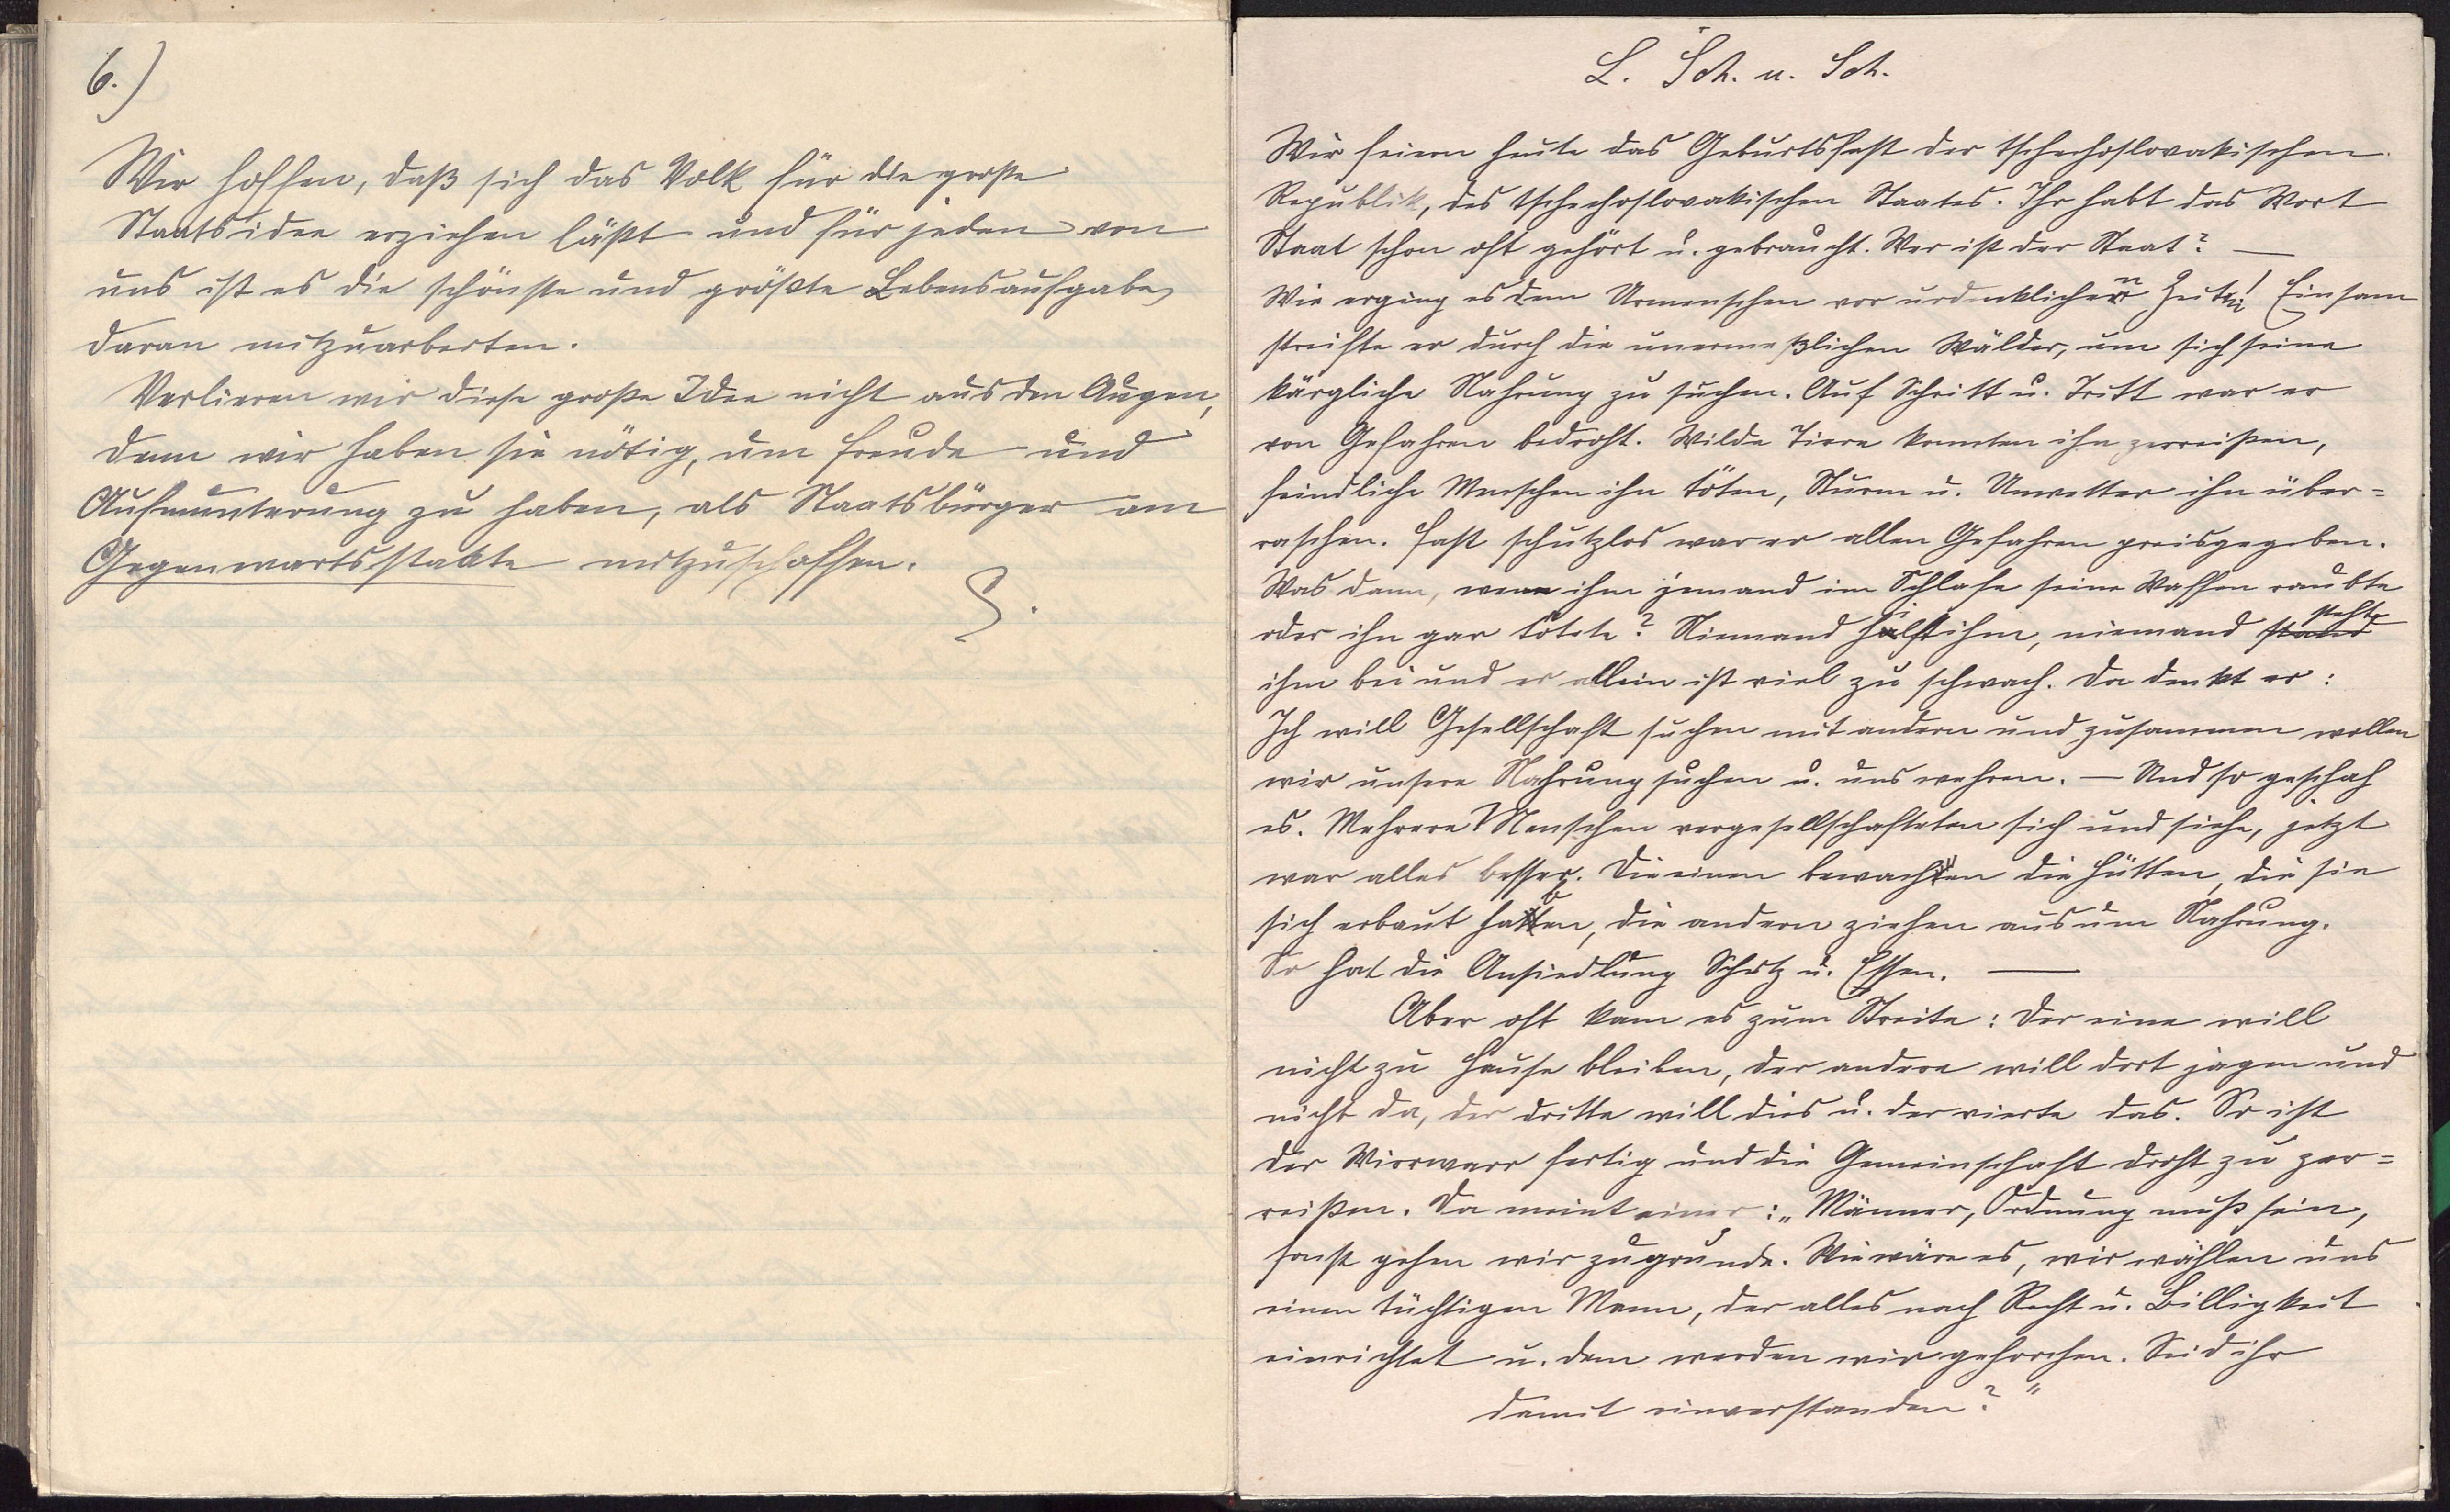 6.)
Wir hoffen, daß sich das Volk für die große
Staatsidee erziehen läßt und für jeden von
uns ist es die schönste und größte Lebensaufgabe,
daran mitzuarbeiten.
Verlieren wir diese große Idee nicht aus den Augen,
denn wir haben sie nötig, um Freude und
Aufmunterung zu haben, als Staatsbürger am
Gegenwartsstaate mitzuschaffen.
S.
L. Sch. u. Sch.
Wir feiern heute das Geburtsfest der tschechoslovakischen
Republik, des tschechoslovakischen Staates. Ihr habt das Wort
Staat schon oft gehört u. gebraucht. Wer ist der Staat? —
Wie erging es dem Urmenschen vor urdenklichen Zeiten! Einsam
streifte er durch die unermeßlichen Wälder, um sich seine
kärgliche Nahrung zu suchen. Auf Schritt u. Tritt war er
von Gefahren bedroht. Wilde Tiere konnten ihn zerreißen,
feindliche Menschen ihn töten, Sturm u. Unwetter ihn über=
raschen. Fast schutzlos war er allen Gefahren preisgegeben.
Was dann, wenn ihm jemand im Schlafe seine Waffen raubte
oder ihn gar tötete? Niemand hilft ihm, niemand stand steht
ihm bei und er allein ist viel zu schwach. Da denkt er:
Ich will Gesellschaft suchen mit andern und zusammen wollen
wir unsere Nahrung suchen u. uns wehren. — Und so geschah
es. Mehrere Menschen vergesellschafteten sich und siehe, jetzt
war alles besser. Die einen bewachen die Hütten, die sie
sich erbaut haben, die andern ziehen aus um Nahrung.
So hat die Ansiedlung Schutz u. Essen. —
Aber oft kam es zum Streite: Der eine will
nicht zu Hause bleiben, der andere will dort jagen und
nicht da, der dritte will dies u. der vierte das. So ist
der Wirrwarr fertig und die Gemeinschaft droht zu zer=
reißen. Da meint einer: „Männer, Ordnung muß sein,
sonst gehen wir zugrunde. Wie wäre es, wir wählen uns
einen tüchtigen Mann, der alles nach Recht u. Billigkeit
einrichtet u. dem werden wir gehorchen. Seid ihr
damit einverstanden?"